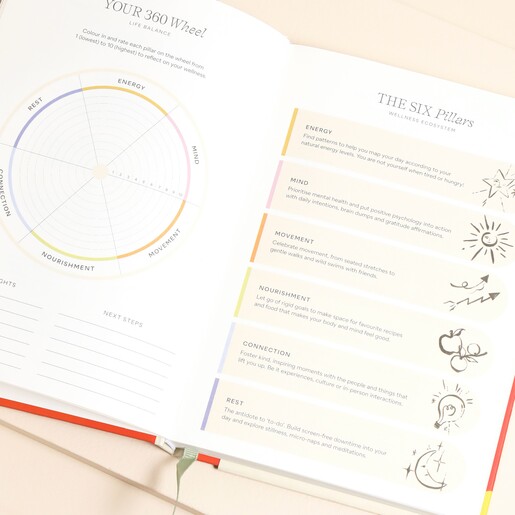 YOUR 360 Wheel
LIFE BALANCE
Colour in and rate each pillar on the wheel from
1 (lowest) to 10 (highest) to reflect on your wellness
ENERGY
MIND
MOVEMENT
NOURISHMENT
CONNECTION
REST
GHTS
NEXT STEPS
THE SIX Pillars
WELLNESS ECOSYSTEM
ENERGY
Find patterns to help you map your day according to your
natural energy levels. You are not yourself when tired or hungry!
MIND
Prioritise mental health and put positive psychology into action
with daily intentions, brain dumps and gratitude affirmations.
MOVEMENT
Celebrate movement, from seated stretches to
gentle walks and wild swims with friends.
NOURISHMENT
Let go of rigid goals to make space for favourite recipes
and food that makes your body and mind feel good.
CONNECTION
Foster kind, inspiring moments with the people and things that
lift you up. Be it experiences, culture or in person interactions.
REST
The antidote to 'to-do'. Build screen-free downtime into your
day and explore stillness, micro-naps and meditations.